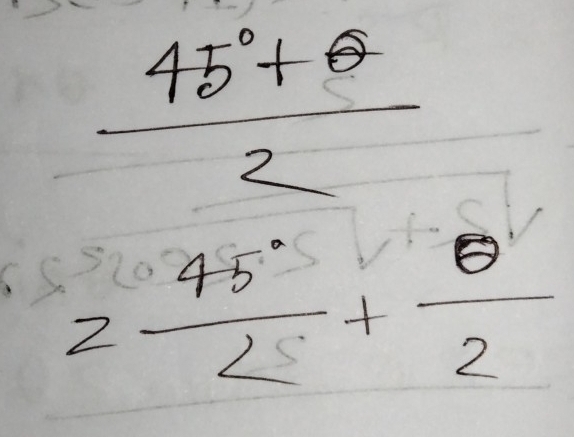 45° + θ
2
= 45°/2 + θ/2